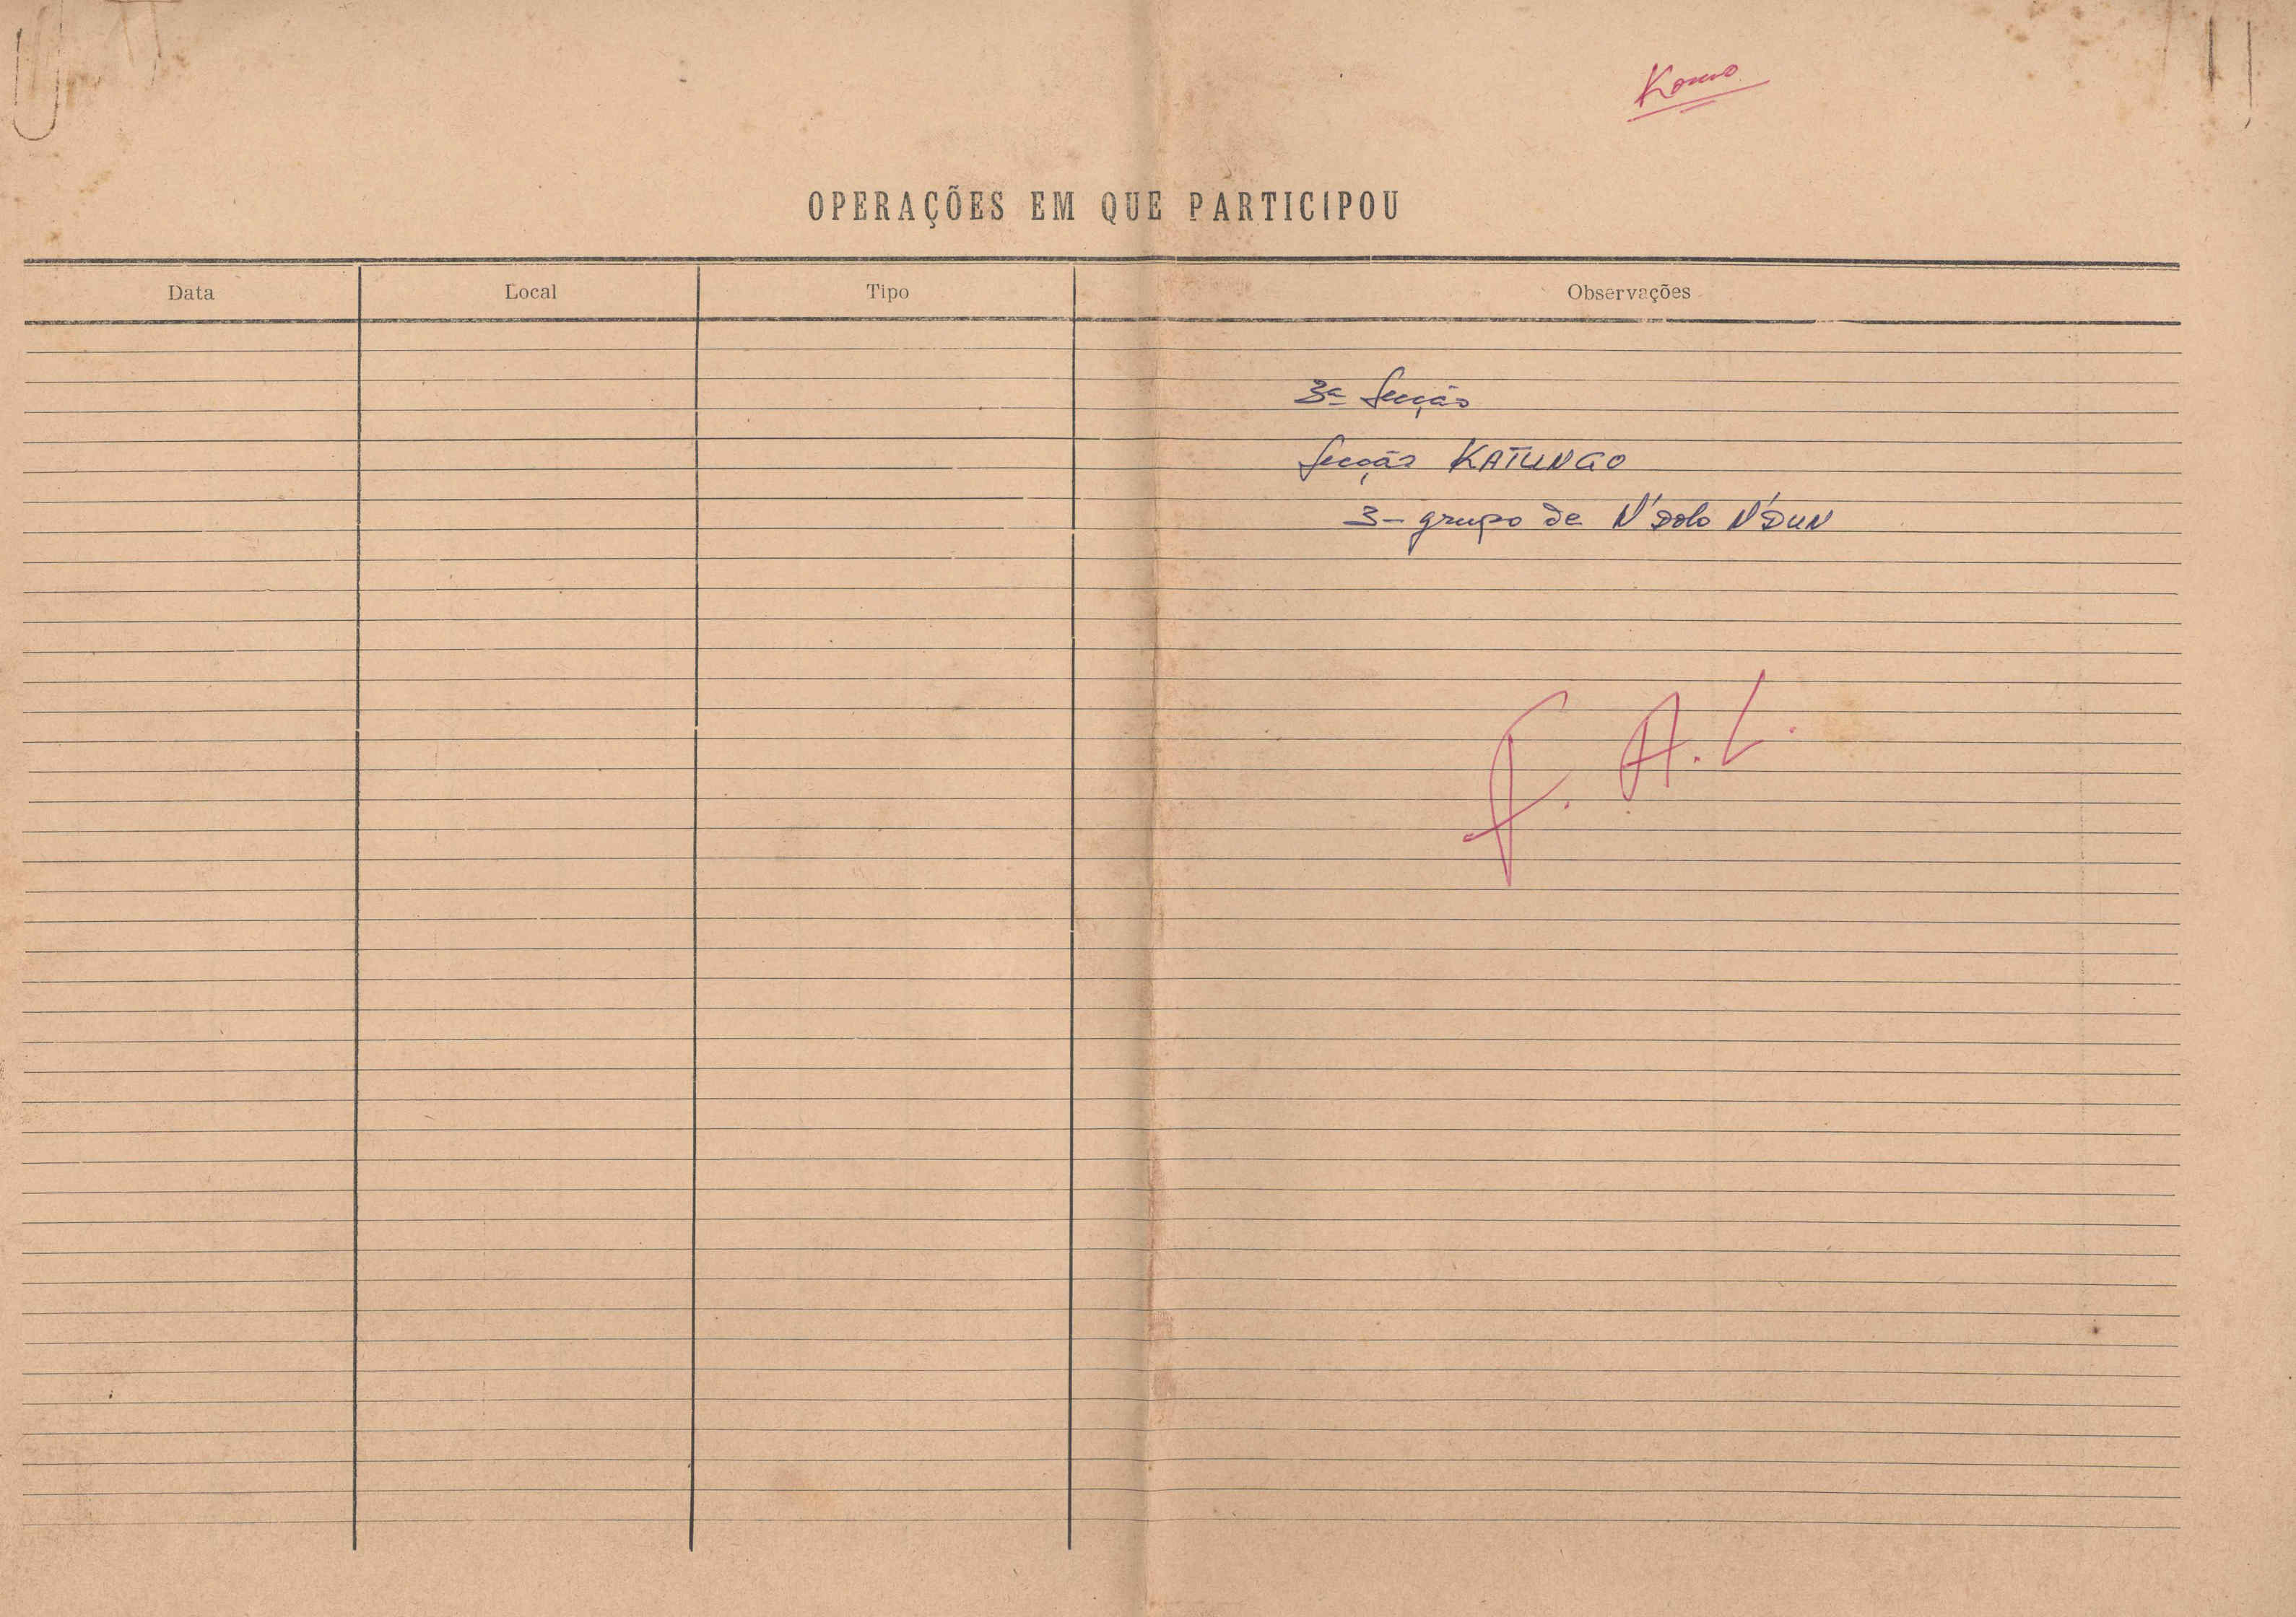 Komo
OPERAÇÕES EM QUE PARTICIPOU
Data Local Tipo Observações
3ª Secção
Secção KATUNGO
3- grupo de N'Dolo N'DUN
F. A. L.